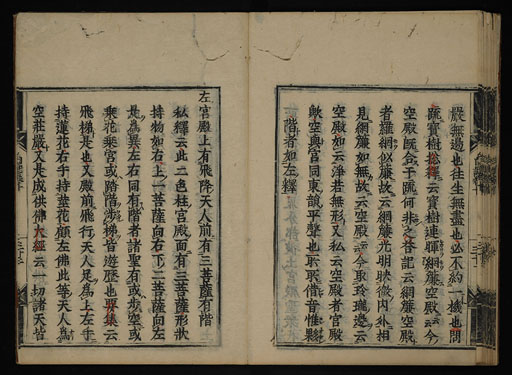 嚴無過也往生無盡也必不約一機也問
疏寶樹捻釋云寶樹連暉網簾空殿云云今
空殿既含于疏何非之答記云網簾空殿
者羅網似簾故云網簾光明映徹内外相
見網簾如無故云空殿云云今取玲瓏邊云
空殿如云淨若無形又私云空殿者官殿
歟空與宮同東韻平聲也耻耻借音惟夥
階者如左釋
左宮殿上有飛降天人前有三菩薩有階
私釋云此二色柱宮殿面有三菩薩形狀
持物如右上一菩薩向右下二菩薩向左
是爲異左右同有階者諸聖有或步空或
乘花乘宮或踏階涉梯皆遊歷也聖集云
飛梯是也又殿前飛行天人足爲上左手
持蓮花右手持莖花顧左佛此等天人爲
空莊嚴又是成供佛大經云一切諸天皆